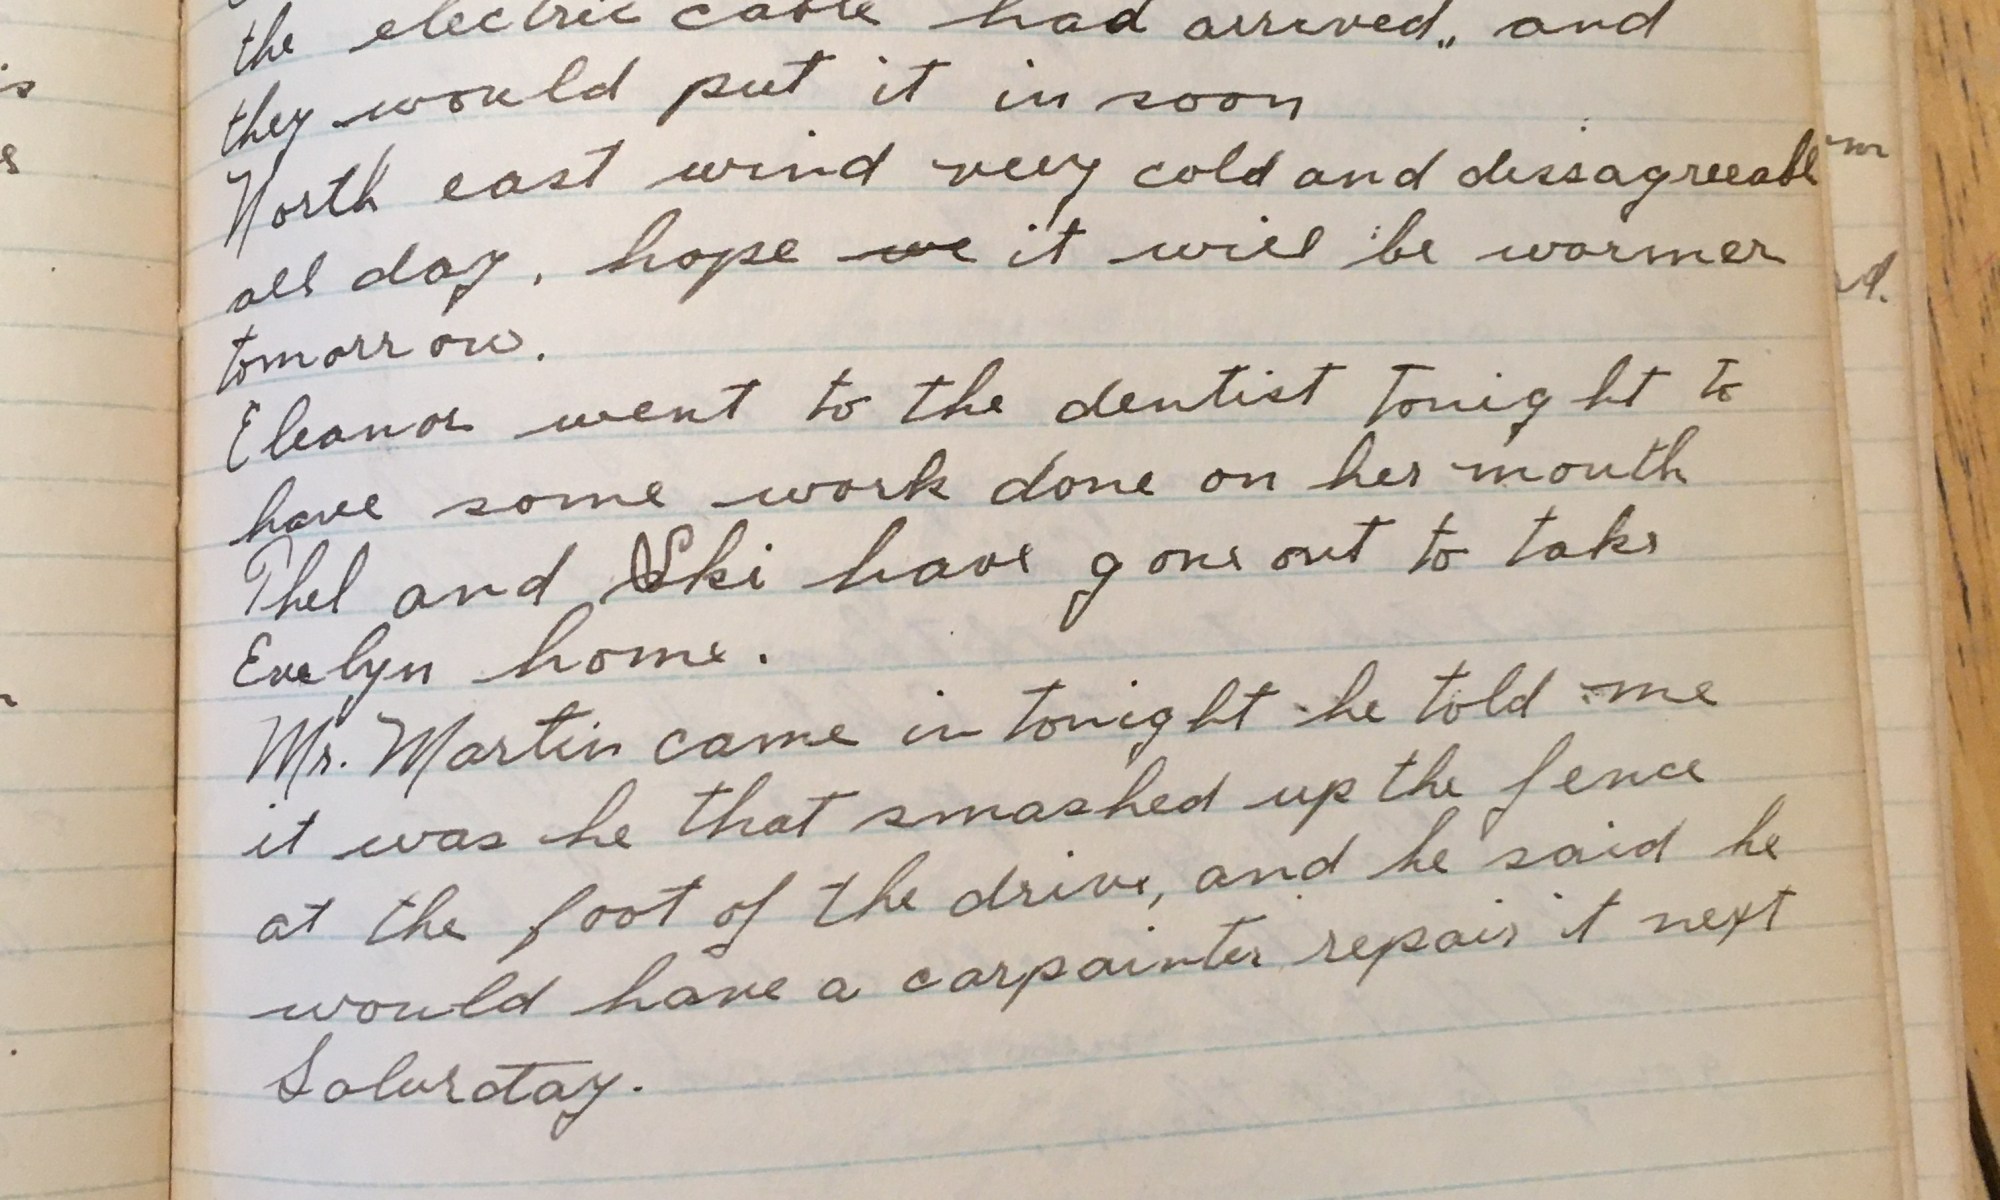 the electric cable had arrived,, and
they would put it in soon
North east wind very cold and dissagreeabl
all day, hope we it will be warmer
tomorrow.
Eleanor went to the dentist tonight to
have some work done on her mouth
Thel and Ski have gone out to take
Evelyn home.
Mr. Martin came in tonight he told me
it was he that smashed up the fence
at the foot of the drive, and he said he
would have a carpainter repair it next
Saturday.